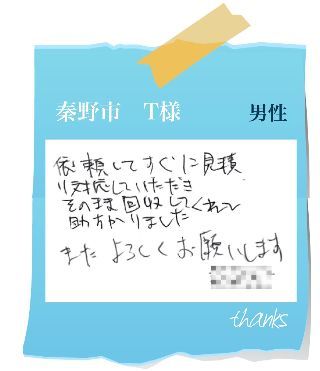 秦野市　T様　男性
依頼してすぐに見積
り対応していただき
そのまま回収してくれて
助かりました
またよろしくお願いします
thanks